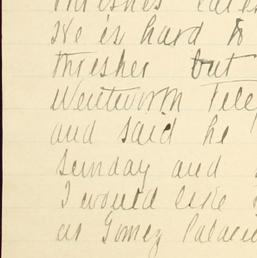 thresher
He is hard to
thresher but
Wentworth Tele
and said he
Sunday and
I would like
at Gomez Palacio